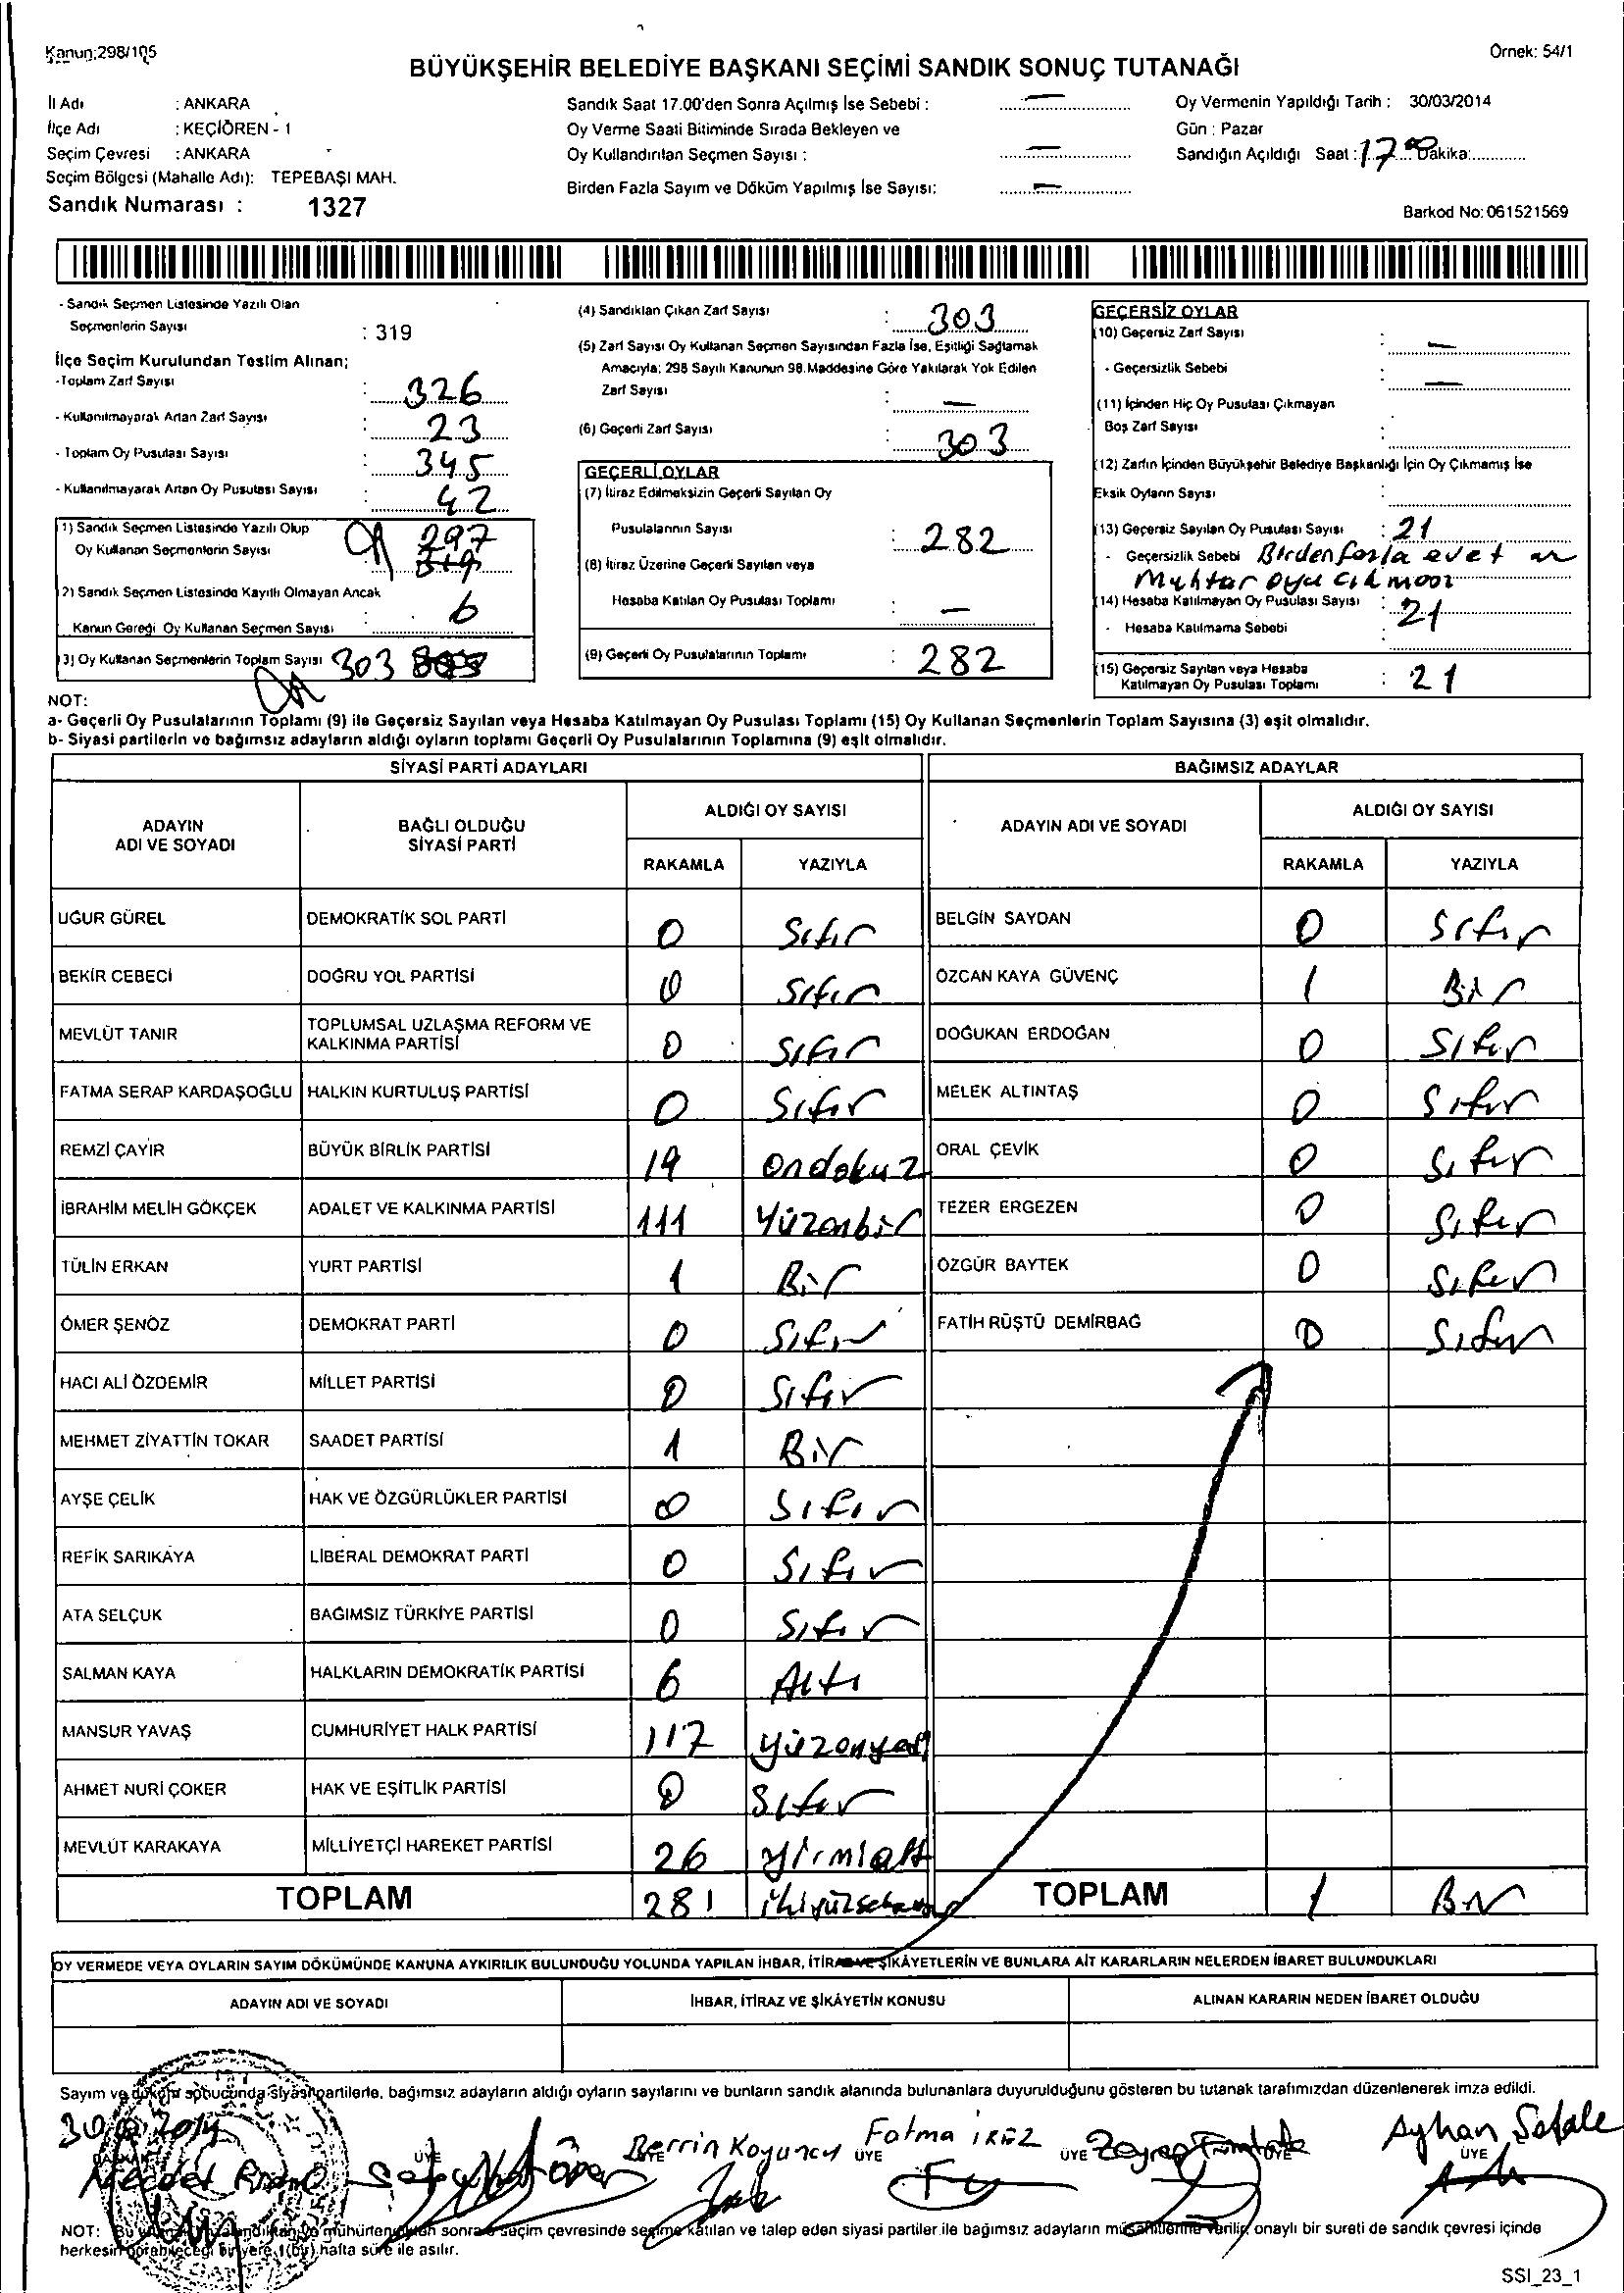 Kanun:298/105
Örnek: 54/1
BÜYÜKŞEHİR BELEDİYE BAŞKANI SEÇİMİ SANDIK SONUÇ TUTANAĞI
İl Adı : ANKARA
İlçe Adı : KEÇİÖREN - 1
Seçim Çevresi : ANKARA
Seçim Bölgesi (Mahalle Adı): TEPEBAŞI MAH.
Sandık Numarası : 1327
Sandık Saat 17.00'den Sonra Açılmış İse Sebebi : —
Oy Verme Saati Bitiminde Sırada Bekleyen ve
Oy Kullandırılan Seçmen Sayısı : —
Birden Fazla Sayım ve Döküm Yapılmış İse Sayısı: —
Oy Vermenin Yapıldığı Tarih : 30/03/2014
Gün : Pazar
Sandığın Açıldığı Saat : 17 00 Dakika:
Barkod No: 061521569
- Sandık Seçmen Listesinde Yazılı Olan
Seçmenlerin Sayısı : 319
İlçe Seçim Kurulundan Teslim Alınan;
-Toplam Zarf Sayısı : 326
- Kullanılmayarak Artan Zarf Sayısı : 23
- Toplam Oy Pusulası Sayısı : 345
- Kullanılmayarak Artan Oy Pusulası Sayısı : 42
1) Sandık Seçmen Listesinde Yazılı Olup
Oy Kullanan Seçmenlerin Sayısı : 297
2) Sandık Seçmen Listesinde Kayıtlı Olmayan Ancak
Kanun Gereği Oy Kullanan Seçmen Sayısı : 6
3) Oy Kullanan Seçmenlerin Toplam Sayısı 303
(4) Sandıktan Çıkan Zarf Sayısı : 303
(5) Zarf Sayısı Oy Kullanan Seçmen Sayısından Fazla İse, Eşitliği Sağlamak
Amacıyla; 298 Sayılı Kanunun 98.Maddesine Göre Yakılarak Yok Edilen
Zarf Sayısı : —
(6) Geçerli Zarf Sayısı : 303
GEÇERLİ OYLAR
(7) İtiraz Edilmeksizin Geçerli Sayılan Oy
Pusulalarının Sayısı : 282
(8) İtiraz Üzerine Geçerli Sayılan veya
Hesaba Katılan Oy Pusulası Toplamı —
(9) Geçerli Oy Pusulalarının Toplamı : 282
GEÇERSİZ OYLAR
(10) Geçersiz Zarf Sayısı : —
- Geçersizlik Sebebi : —
(11) İçinden Hiç Oy Pusulası Çıkmayan
Boş Zarf Sayısı :
(12) Zarfın İçinden Büyükşehir Belediye Başkanlığı İçin Oy Çıkmamış İse
Eksik Oyların Sayısı :
(13) Geçersiz Sayılan Oy Pusulası Sayısı : 21
- Geçersizlik Sebebi Birden fazla evet
Muhtar oyu
(14) Hesaba Katılmayan Oy Pusulası Sayısı : 21
- Hesaba Katılmama Sebebi
(15) Geçersiz Sayılan veya Hesaba
Katılmayan Oy Pusulası Toplamı : 21
NOT:
a- Geçerli Oy Pusulalarının Toplamı (9) ile Geçersiz Sayılan veya Hesaba Katılmayan Oy Pusulası Toplamı (15) Oy Kullanan Seçmenlerin Toplam Sayısına (3) eşit olmalıdır.
b- Siyasi partilerin ve bağımsız adayların aldığı oyların toplamı Geçerli Oy Pusulalarının Toplamına (9) eşit olmalıdır.
SİYASİ PARTİ ADAYLARI
ADAYIN ADI VE SOYADI BAĞLI OLDUĞU SİYASİ PARTİ ALDIĞI OY SAYISI
RAKAMLA YAZIYLA
UĞUR GÜREL DEMOKRATİK SOL PARTİ 0 Sıfır
BEKİR CEBECİ DOĞRU YOL PARTİSİ 0 Sıfır
MEVLÜT TANIR TOPLUMSAL UZLAŞMA REFORM VE KALKINMA PARTİSİ 0 Sıfır
FATMA SERAP KARDAŞOĞLU HALKIN KURTULUŞ PARTİSİ 0 Sıfır
REMZİ ÇAYIR BÜYÜK BİRLİK PARTİSİ 19 ondokuz
İBRAHİM MELİH GÖKÇEK ADALET VE KALKINMA PARTİSİ 111 Yüzonbir
TÜLİN ERKAN YURT PARTİSİ 1 Bir
ÖMER ŞENÖZ DEMOKRAT PARTİ 0 Sıfır
HACI ALİ ÖZDEMİR MİLLET PARTİSİ 0 Sıfır
MEHMET ZİYATTİN TOKAR SAADET PARTİSİ 1 Bir
AYŞE ÇELİK HAK VE ÖZGÜRLÜKLER PARTİSİ 0 Sıfır
REFİK SARIKAYA LİBERAL DEMOKRAT PARTİ 0 Sıfır
ATA SELÇUK BAĞIMSIZ TÜRKİYE PARTİSİ 0 Sıfır
SALMAN KAYA HALKLARIN DEMOKRATİK PARTİSİ 6 Altı
MANSUR YAVAŞ CUMHURİYET HALK PARTİSİ 117 yüzonyedi
AHMET NURİ ÇOKER HAK VE EŞİTLİK PARTİSİ 0 Sıfır
MEVLÜT KARAKAYA MİLLİYETÇİ HAREKET PARTİSİ 26 yirmialtı
TOPLAM 281
BAĞIMSIZ ADAYLAR
ADAYIN ADI VE SOYADI ALDIĞI OY SAYISI
RAKAMLA YAZIYLA
BELGİN SAYDAN 0 Sıfır
ÖZCAN KAYA GÜVENÇ 1 Bir
DOĞUKAN ERDOĞAN 0 Sıfır
MELEK ALTINTAŞ 0 Sıfır
ORAL ÇEVİK 0 Sıfır
TEZER ERGEZEN 0 Sıfır
ÖZGÜR BAYTEK 0 Sıfır
FATİH RÜŞTÜ DEMİRBAĞ 0 Sıfır
TOPLAM 1 Bir
OY VERMEDE VEYA OYLARIN SAYIM DÖKÜMÜNDE KANUNA AYKIRILIK BULUNDUĞU YOLUNDA YAPILAN İHBAR, İTİRAZ VE ŞİKÂYETLERİN VE BUNLARA AİT KARARLARIN NELERDEN İBARET BULUNDUKLARI
ADAYIN ADI VE SOYADI İHBAR, İTİRAZ VE ŞİKÂYETİN KONUSU ALINAN KARARIN NEDEN İBARET OLDUĞU
Sayım ve döküm sonucunda siyasi partilerle, bağımsız adayların aldığı oyların sayılarını ve bunların sandık alanında bulunanlara duyurulduğunu gösteren bu tutanak tarafımızdan düzenlenerek imza edildi.
2014
BAŞKAN ÜYE ÜYE ÜYE ÜYE ÜYE ÜYE
Berrin Koyuncu Fatma Zeynep Ayhan
NOT: Bu tutanak imzalandıktan ve mühürlendikten sonra seçim çevresinde seçime katılan ve talep eden siyasi partiler ile bağımsız adayların müşahitlerine verilip, onaylı bir sureti de sandık çevresi içinde
herkesin görebileceği bir yere 1(bir) hafta süre ile asılır.
SSI_23_1